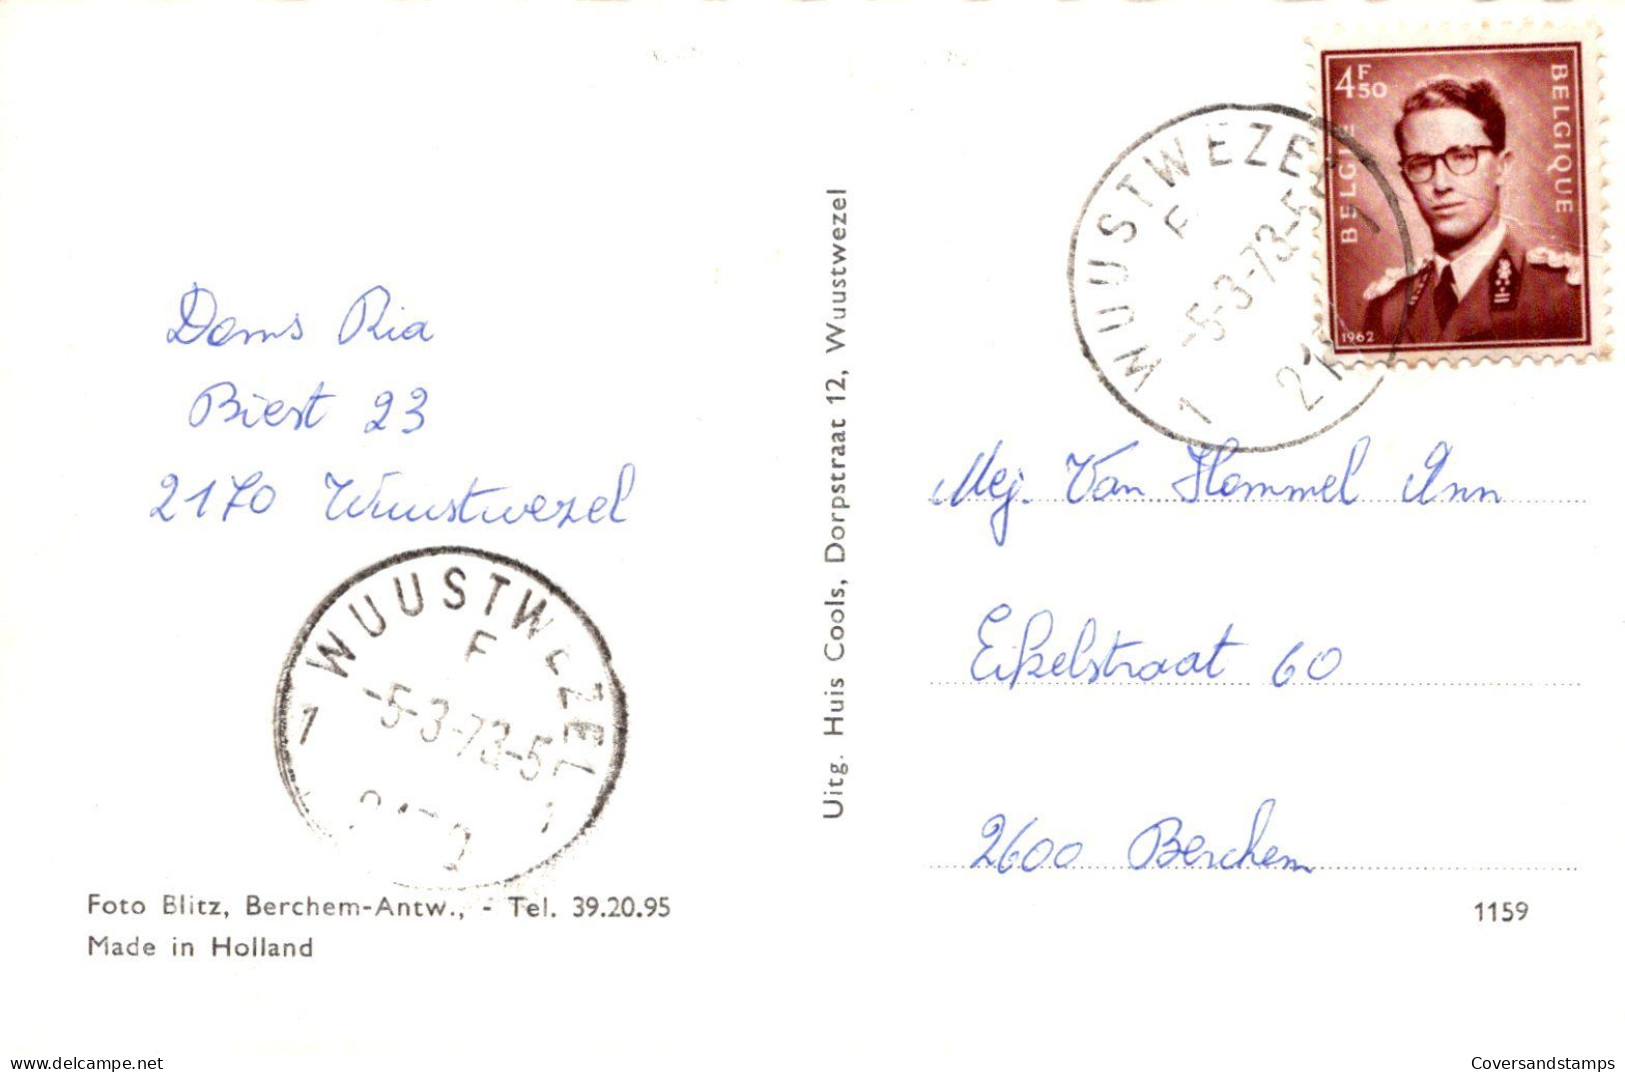 Doms Ria
Biest 23
2170 Wuustwezel
WUUSTWEZEL
F
-5-3-73-5
1 1
Foto Blitz, Berchem-Antw., - Tel. 39.20.95
Made in Holland
Uitg. Huis Cools, Dorpstraat 12, Wuustwezel
WUUSTWEZEL 1
F
-5-3-73-5
1 21
4F50
BELGIE
BELGIQUE
1962
Mej. Van Hommel Ann
Eikelstraat 60
2600 Berchem
1159
delcampe.net
Coversandstamps